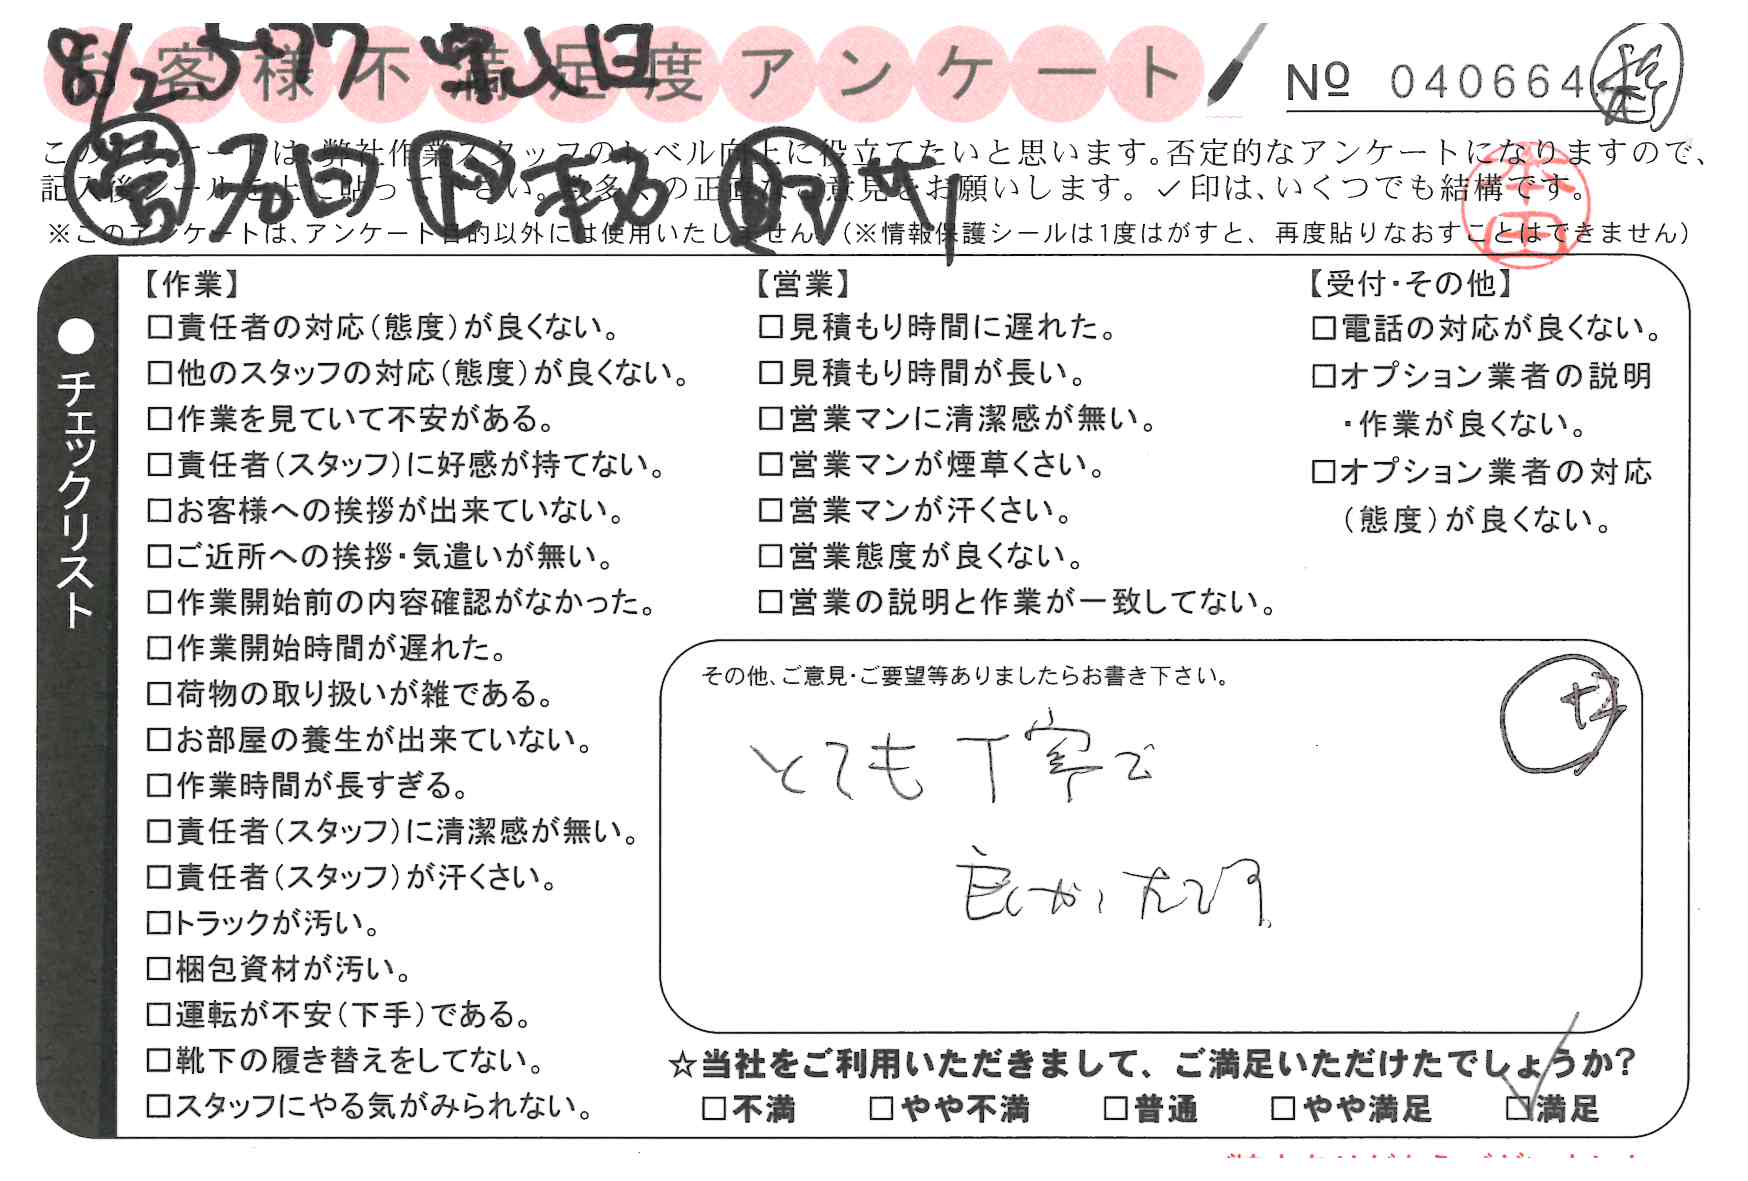 お客様不満足度アンケート
№ 040664
このアンケートは、弊社作業スタッフのレベル向上に役立てたいと思います。否定的なアンケートになりますので、
記入後シールを上に貼って下さい。数多くの正直なご意見をお願いします。✓印は、いくつでも結構です。
※このアンケートは、アンケート目的以外には使用いたしません。(※情報保護シールは1度はがすと、再度貼りなおすことはできません)
●チェックリスト
【作業】
□責任者の対応(態度)が良くない。
□他のスタッフの対応(態度)が良くない。
□作業を見ていて不安がある。
□責任者(スタッフ)に好感が持てない。
□お客様への挨拶が出来ていない。
□ご近所への挨拶・気遣いが無い。
□作業開始前の内容確認がなかった。
□作業開始時間が遅れた。
□荷物の取り扱いが雑である。
□お部屋の養生が出来ていない。
□作業時間が長すぎる。
□責任者(スタッフ)に清潔感が無い。
□責任者(スタッフ)が汗くさい。
□トラックが汚い。
□梱包資材が汚い。
□運転が不安(下手)である。
□靴下の履き替えをしてない。
□スタッフにやる気がみられない。
【営業】
□見積もり時間に遅れた。
□見積もり時間が長い。
□営業マンに清潔感が無い。
□営業マンが煙草くさい。
□営業マンが汗くさい。
□営業態度が良くない。
□営業の説明と作業が一致してない。
【受付・その他】
□電話の対応が良くない。
□オプション業者の説明
・作業が良くない。
□オプション業者の対応
(態度)が良くない。
その他、ご意見・ご要望等ありましたらお書き下さい。
とても丁寧で
良かったです。
☆当社をご利用いただきまして、ご満足いただけたでしょうか?
□不満 □やや不満 □普通 □やや満足 ☑満足